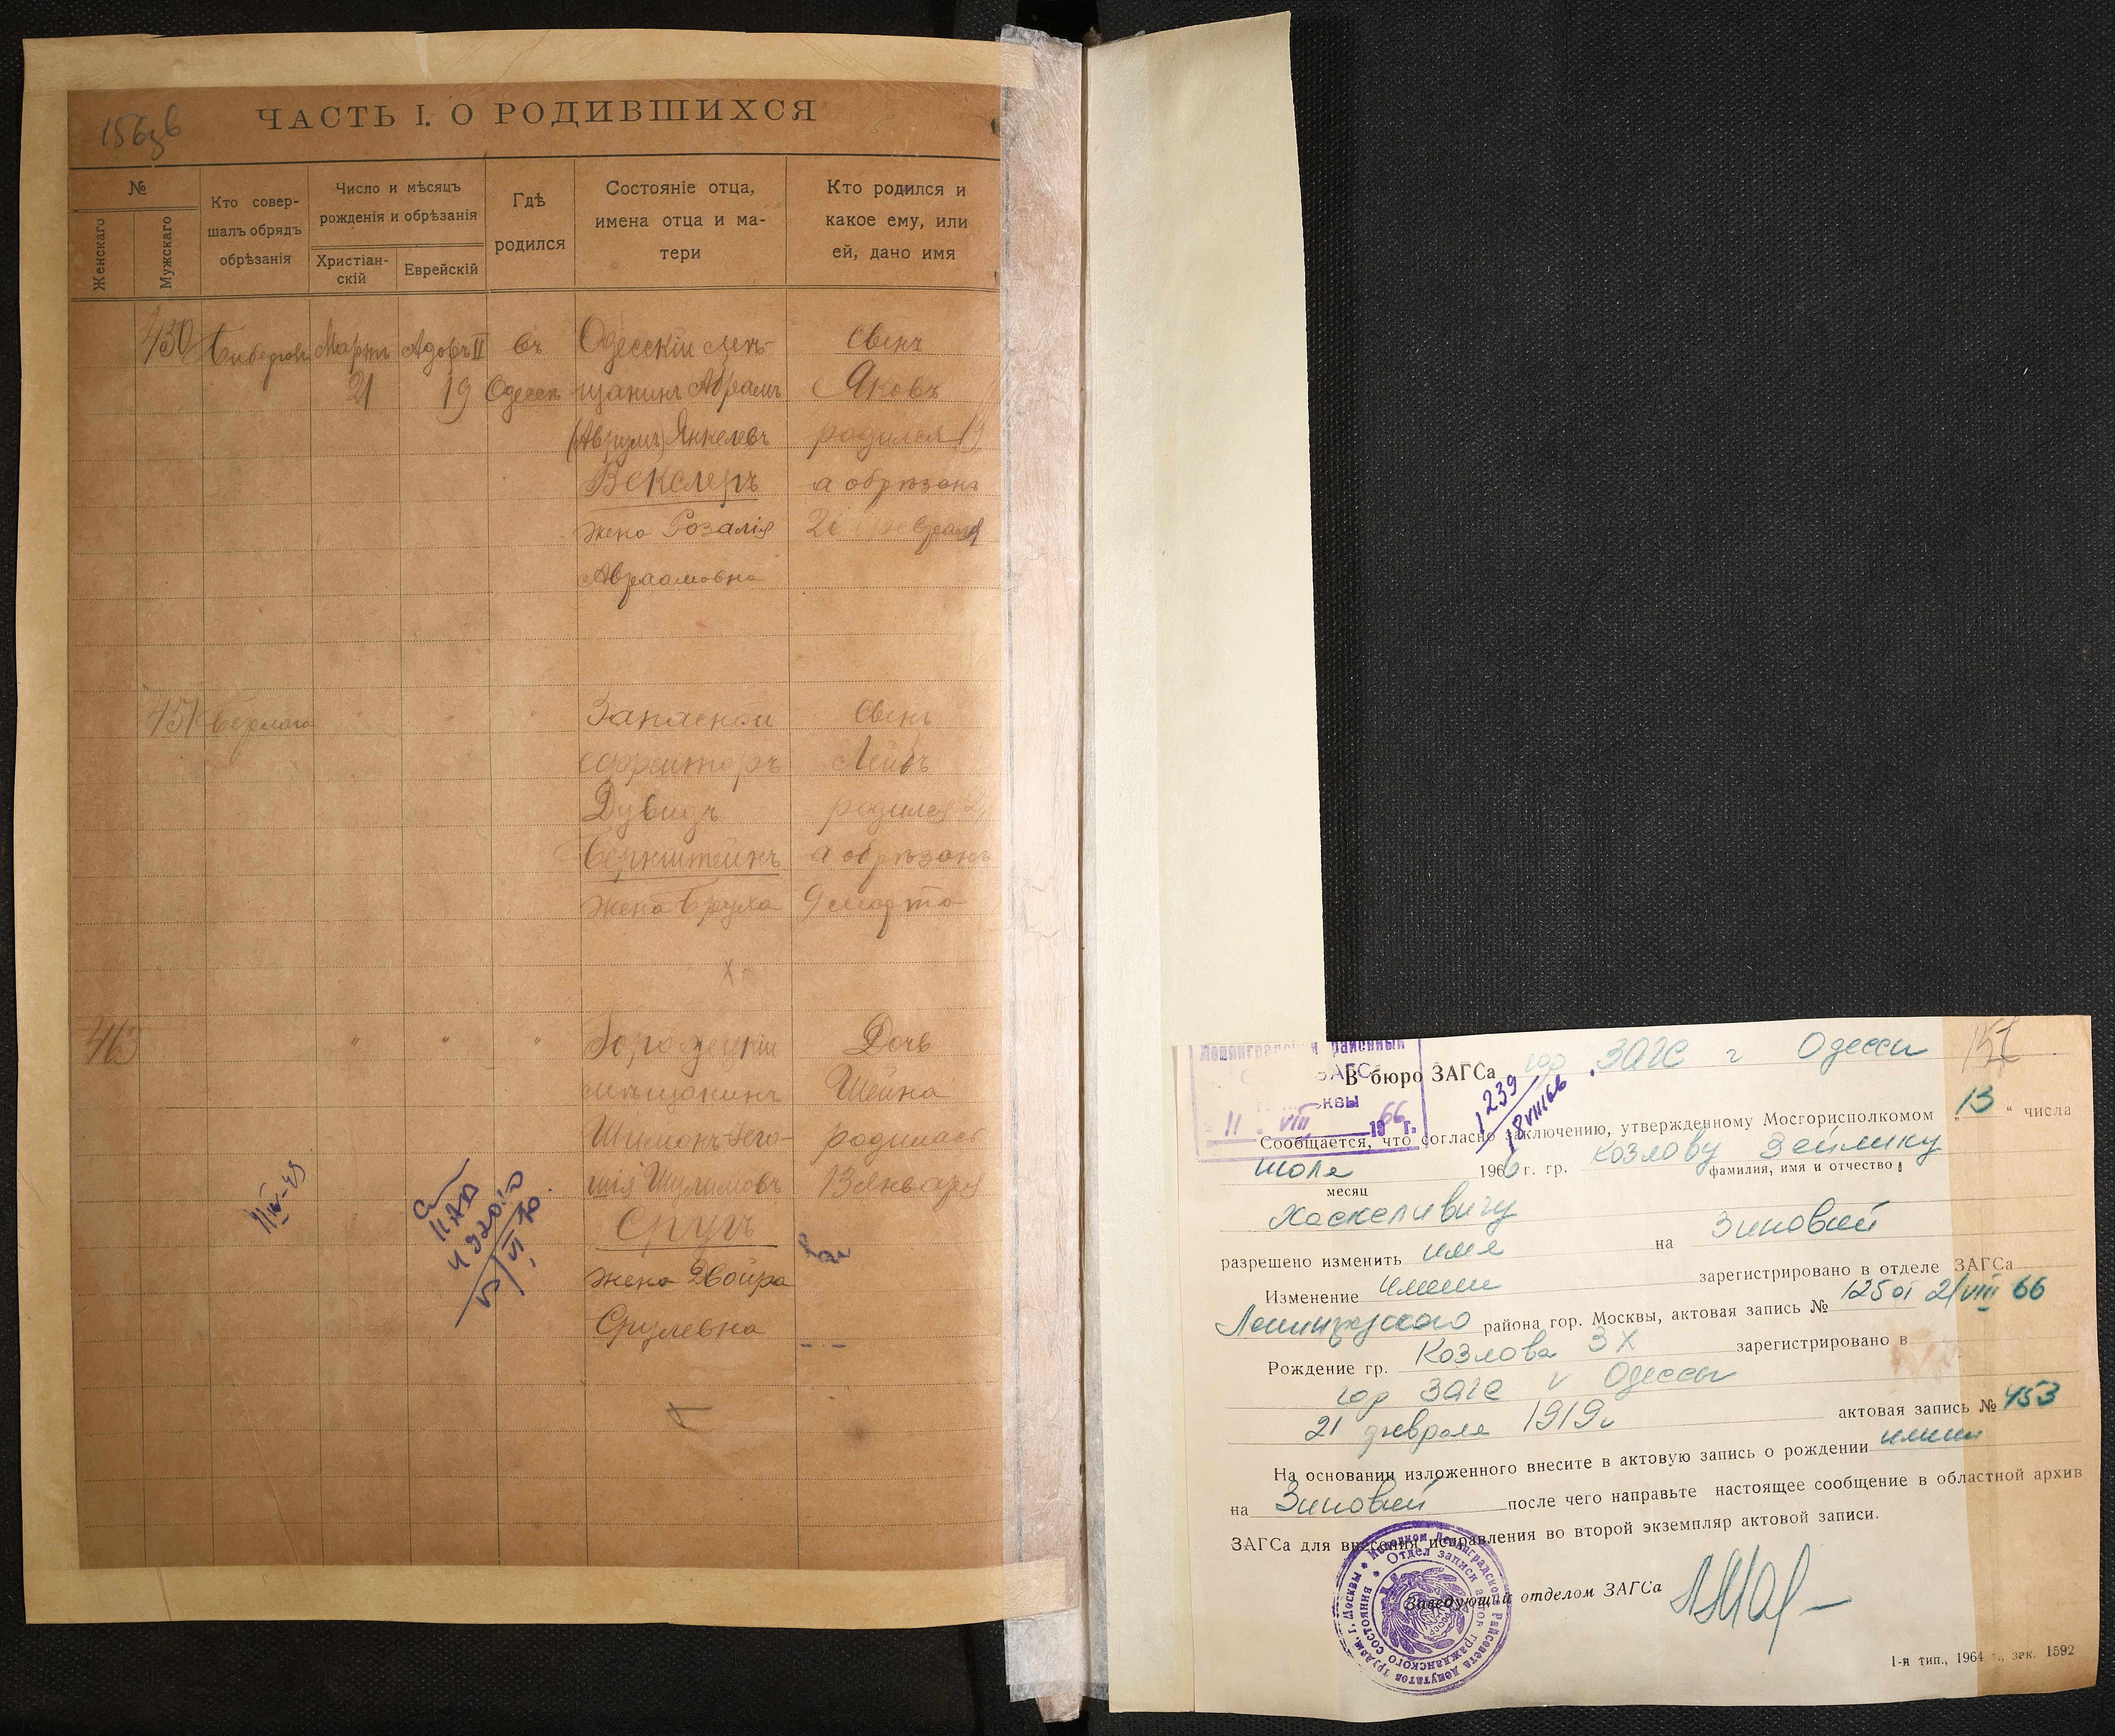 156
ЧАСТЬ I. О РОДИВШИХСЯ
№
Женскаго
Мужскаго
Кто совер-
шалъ обрядъ
обрѣзанія
Число и мѣсяцъ
рожденія и обрѣзанія
Христіан-
скій
Еврейскій
Гдѣ
родился
Состояніе отца,
имена отца и ма-
тери
Кто родился и
какое ему, или
ей, дано имя
450 Мартъ Адаръ II въ Одесскій мѣ- Сынъ
21 19 Одессѣ щанинъ Абрамъ Яковъ
(Аврумъ) Янкелевъ родился
Векслеръ а обрѣзанъ
жена Розалія 21 февраля
Авраамовна
451 " " " Запасной Сынъ
ефрейторъ Лейбъ
Дувидъ родился
Бернштейнъ а обрѣзанъ
жена Бруха 9 марта
463 " " " Дочь
мѣщанинъ Шейна
родилась
Шулимовъ 13 Января
Срулъ
жена Двойра
Срулевна
II IV-49
Ленинградский районный
ЗАГС
Москвы
11 VIII 1966 г.
1239
18 VIII 66
157
В бюро ЗАГСа гор ЗАГС г Одессы
Сообщается, что согласно заключению, утвержденному Мосгорисполкомом „13“ числа
июля 1966 г. гр. Козлову Зейлику
месяц фамилия, имя и отчество
Хаскелевичу
разрешено изменить имя на Зиновий
Изменение имени зарегистрировано в отделе ЗАГСа
Ленинградского района гор. Москвы, актовая запись № 125 от 2/VIII 66
Рождение гр. Козлова З Х зарегистрировано в
гор ЗАГС г Одессы
21 февраля 1919 г актовая запись № 453
На основании изложенного внесите в актовую запись о рождении имени
на Зиновий после чего направьте настоящее сообщение в областной архив
ЗАГСа для внесения исправления во второй экземпляр актовой записи.
Заведующий отделом ЗАГСа
Исполком Ленинградского Райсовета депутатов трудящ. г. Москвы
Отдел записи актов гражданского состояния
1-я тип., 1964 г., зак. 1592